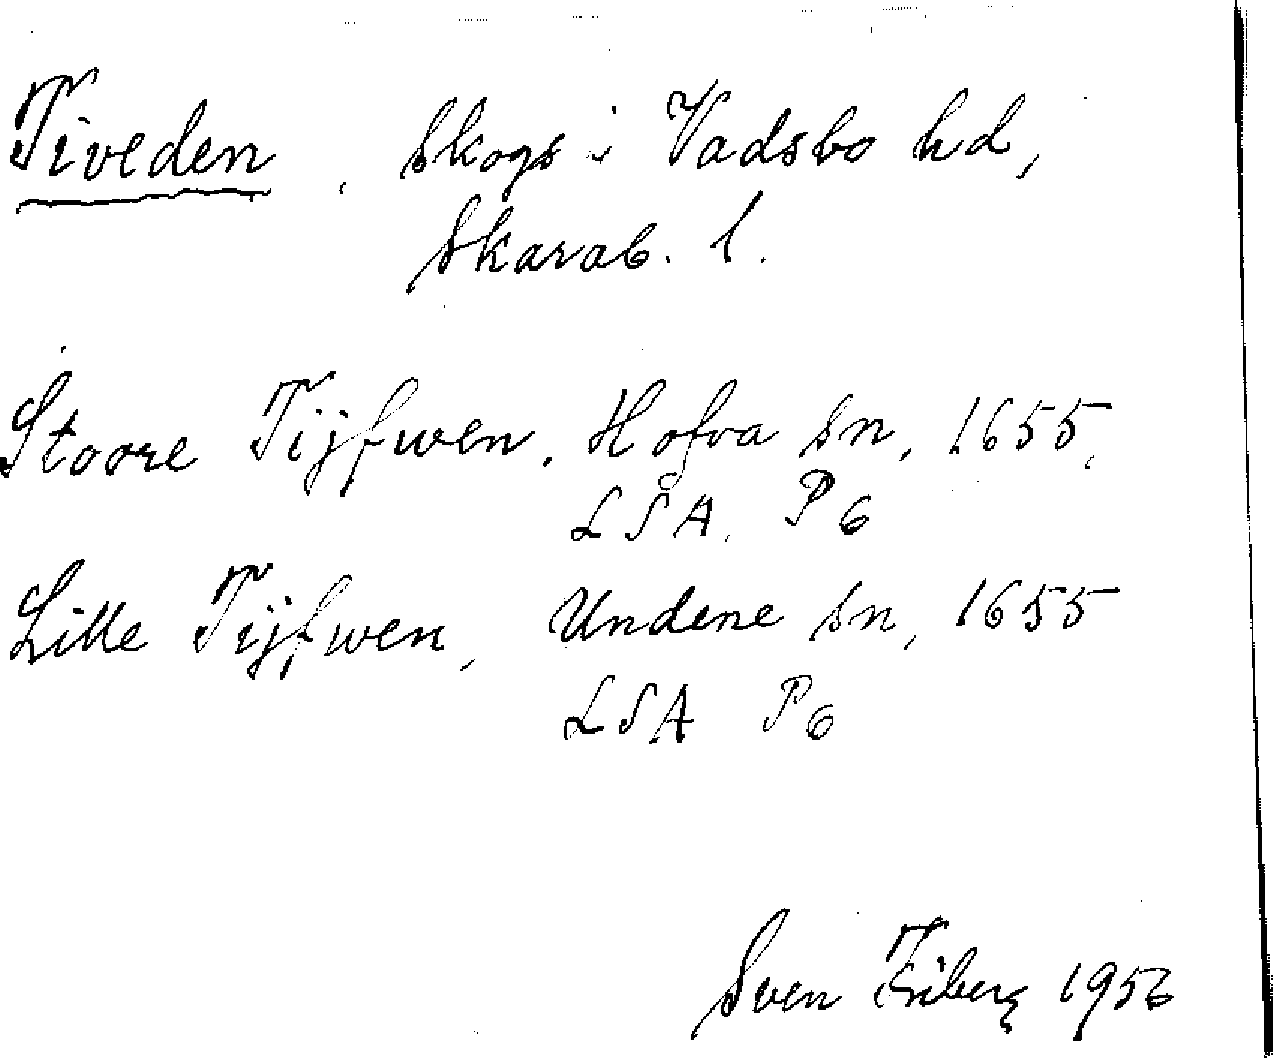 Tiveden, Skogs i Vadsbo hd,
Skarab. l.
Stoore Tijfwen, Hofva sn, 1655,
LSA, P6
Lille Tijfwen, Undene sn, 1655
LSA P6
Sven Friberg 1956